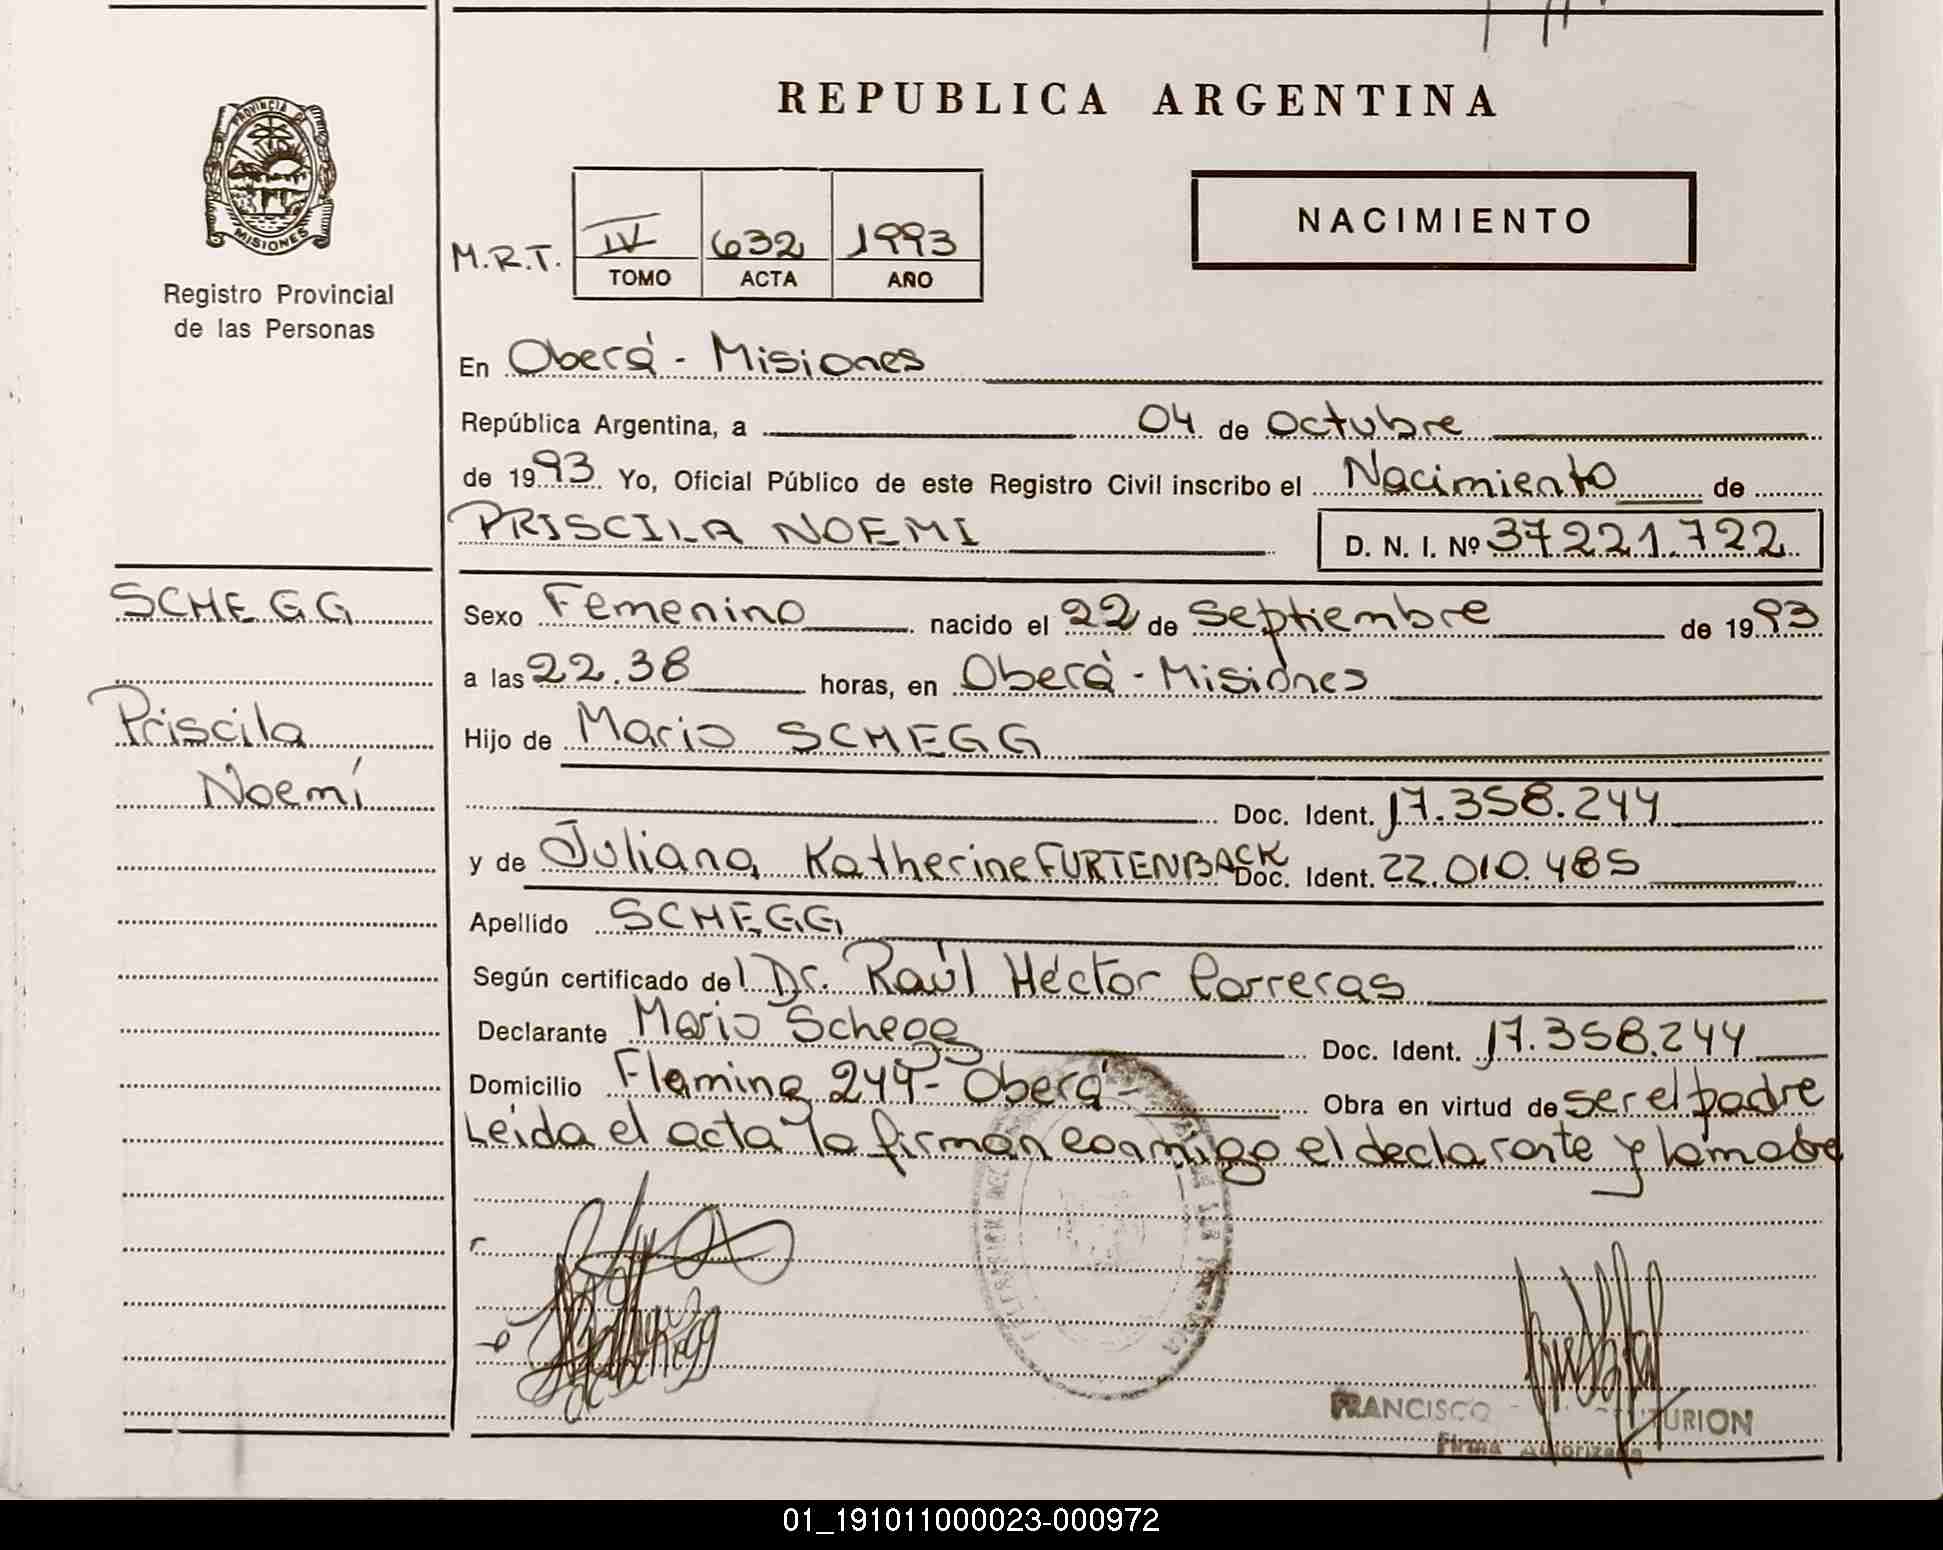 REPUBLICA ARGENTINA
PROVINCIA DE
MISIONES
Registro Provincial
de las Personas
NACIMIENTO
M.R.T. IV 632 1993
TOMO ACTA AÑO
En Oberá - Misiones
República Argentina, a 04 de Octubre
de 1993 Yo, Oficial Público de este Registro Civil inscribo el Nacimiento de
PRISCILA NOEMI D. N. I. Nº 37.221.722
SCHEGG
Priscila
Noemí
Sexo Femenino nacido el 22 de Septiembre de 1993
a las 22.38 horas, en Oberá - Misiones
Hijo de Mario SCHEGG
Doc. Ident. 17.358.244
y de Juliana Katherine FURTENBACK Doc. Ident. 22.010.485
Apellido SCHEGG
Según certificado del Dr. Raúl Héctor Porreras
Declarante Mario Schegg Doc. Ident. 17.358.244
Domicilio Fleming 244 - Oberá - Obra en virtud de ser el padre
Leida el acta la firman conmigo el declarante y la madre
FRANCISCO TURION
Firma Autorizada
01_191011000023-000972